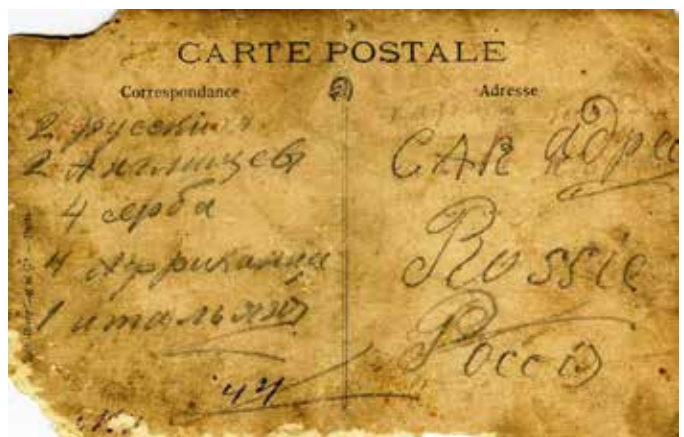 CARTE POSTALE
Correspondance
2 русских
2 Англицев
4 серба
4 Африканца
1 итальян
44
Adresse
адрес
Rossie
Россія